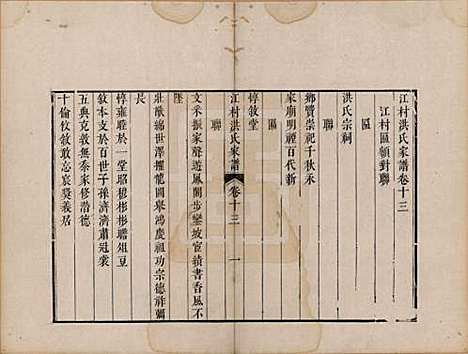 江村洪氏家譜卷十三
江村匾額對聯
匾
洪氏宗祠
聯
鄉賢崇祀千秋永
家廟明禋百代新
匾
惇敘堂
江村洪氏家譜 卷十三 一
聯
文采振家聲遊風閣步鑾坡宦績書香風不
墜
莊猷綿世澤擢龍圖舉鴻慶祖功宗德祥彌
長
惇雍睦於一堂昭穆彬彬瞻俎豆
敘本支於百世子孫濟濟肅冠裳
五典克敦無忝家修潛德
十倫攸敘敢忘袞裘義居